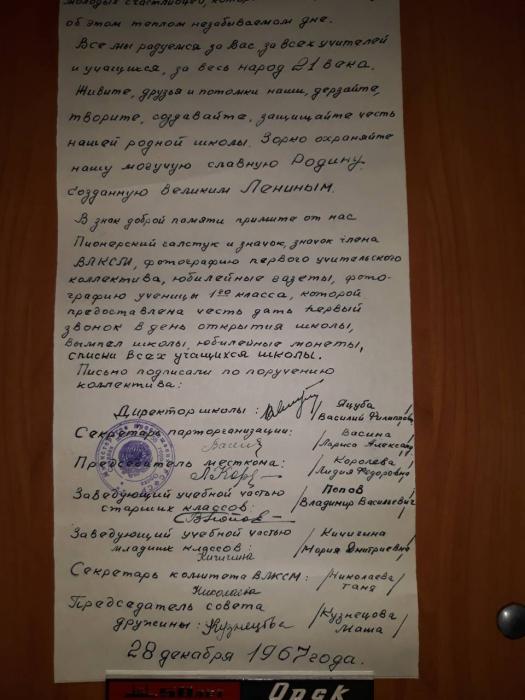 молодых счастливой,
об этом теплом незабываемом дне.
Все мы радуемся за Вас, за всех учителей
и учащихся, за весь народ 21 века.
Живите, друзья и потомки наши, дерзайте,
творите, создавайте, защищайте честь
нашей родной школы. Зорко охраняйте
нашу могучую славную Родину,
созданную великим Лениным.
В знак доброй памяти примите от нас
Пионерский галстук и значок, значок члена
ВЛКСМ, фотографию первого учительского
коллектива, юбилейные газеты, фото-
графию ученицы 1го класса, которой
предоставлена честь дать первый
звонок в день открытия школы,
вымпел школы, юбилейные монеты,
списки всех учащихся школы.
Письмо подписали по поручению
коллектива:
Директор школы: /Яцуба
Василий Филиппович/
Секретарь парторганизации: /Васина
Лариса Алексан
Председатель месткома: /Королева
Лидия Федоровна/
Заведующий учебной частью
старших классов: /Попов
Владимир Васильевич/
Заведующий учебной частью
младших классов: Кичигина /Кичигина
Мария Дмитриевна/
Секретарь комитета ВЛКСМ: Николаева /Николаева
Таня/
Председатель совета
дружины: Кузнецова /Кузнецова
Маша/
28 декабря 1967 года.
Орск